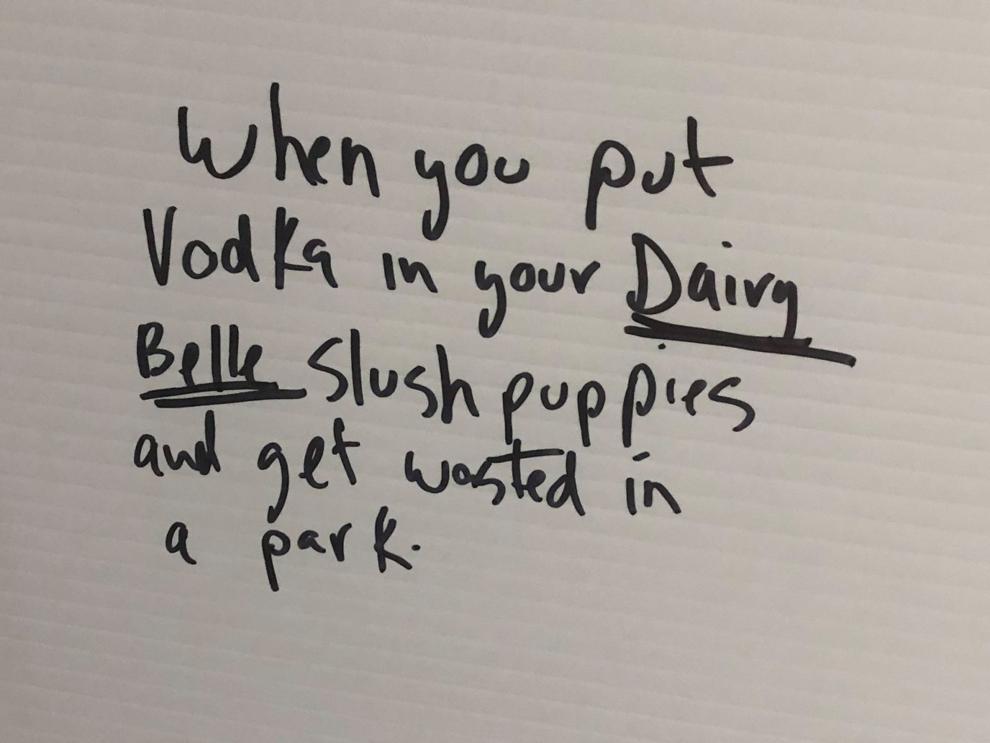 When you put
Vodka in your Dairy
Belle Slush puppies
and get wasted in
a park.